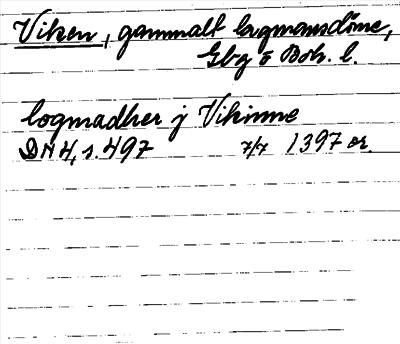 Viken, gammalt lagmansdöme,
Gbg o Boh. l.
logmadher j Vikinne
DN 4, s. 497 7/7 1397 or.